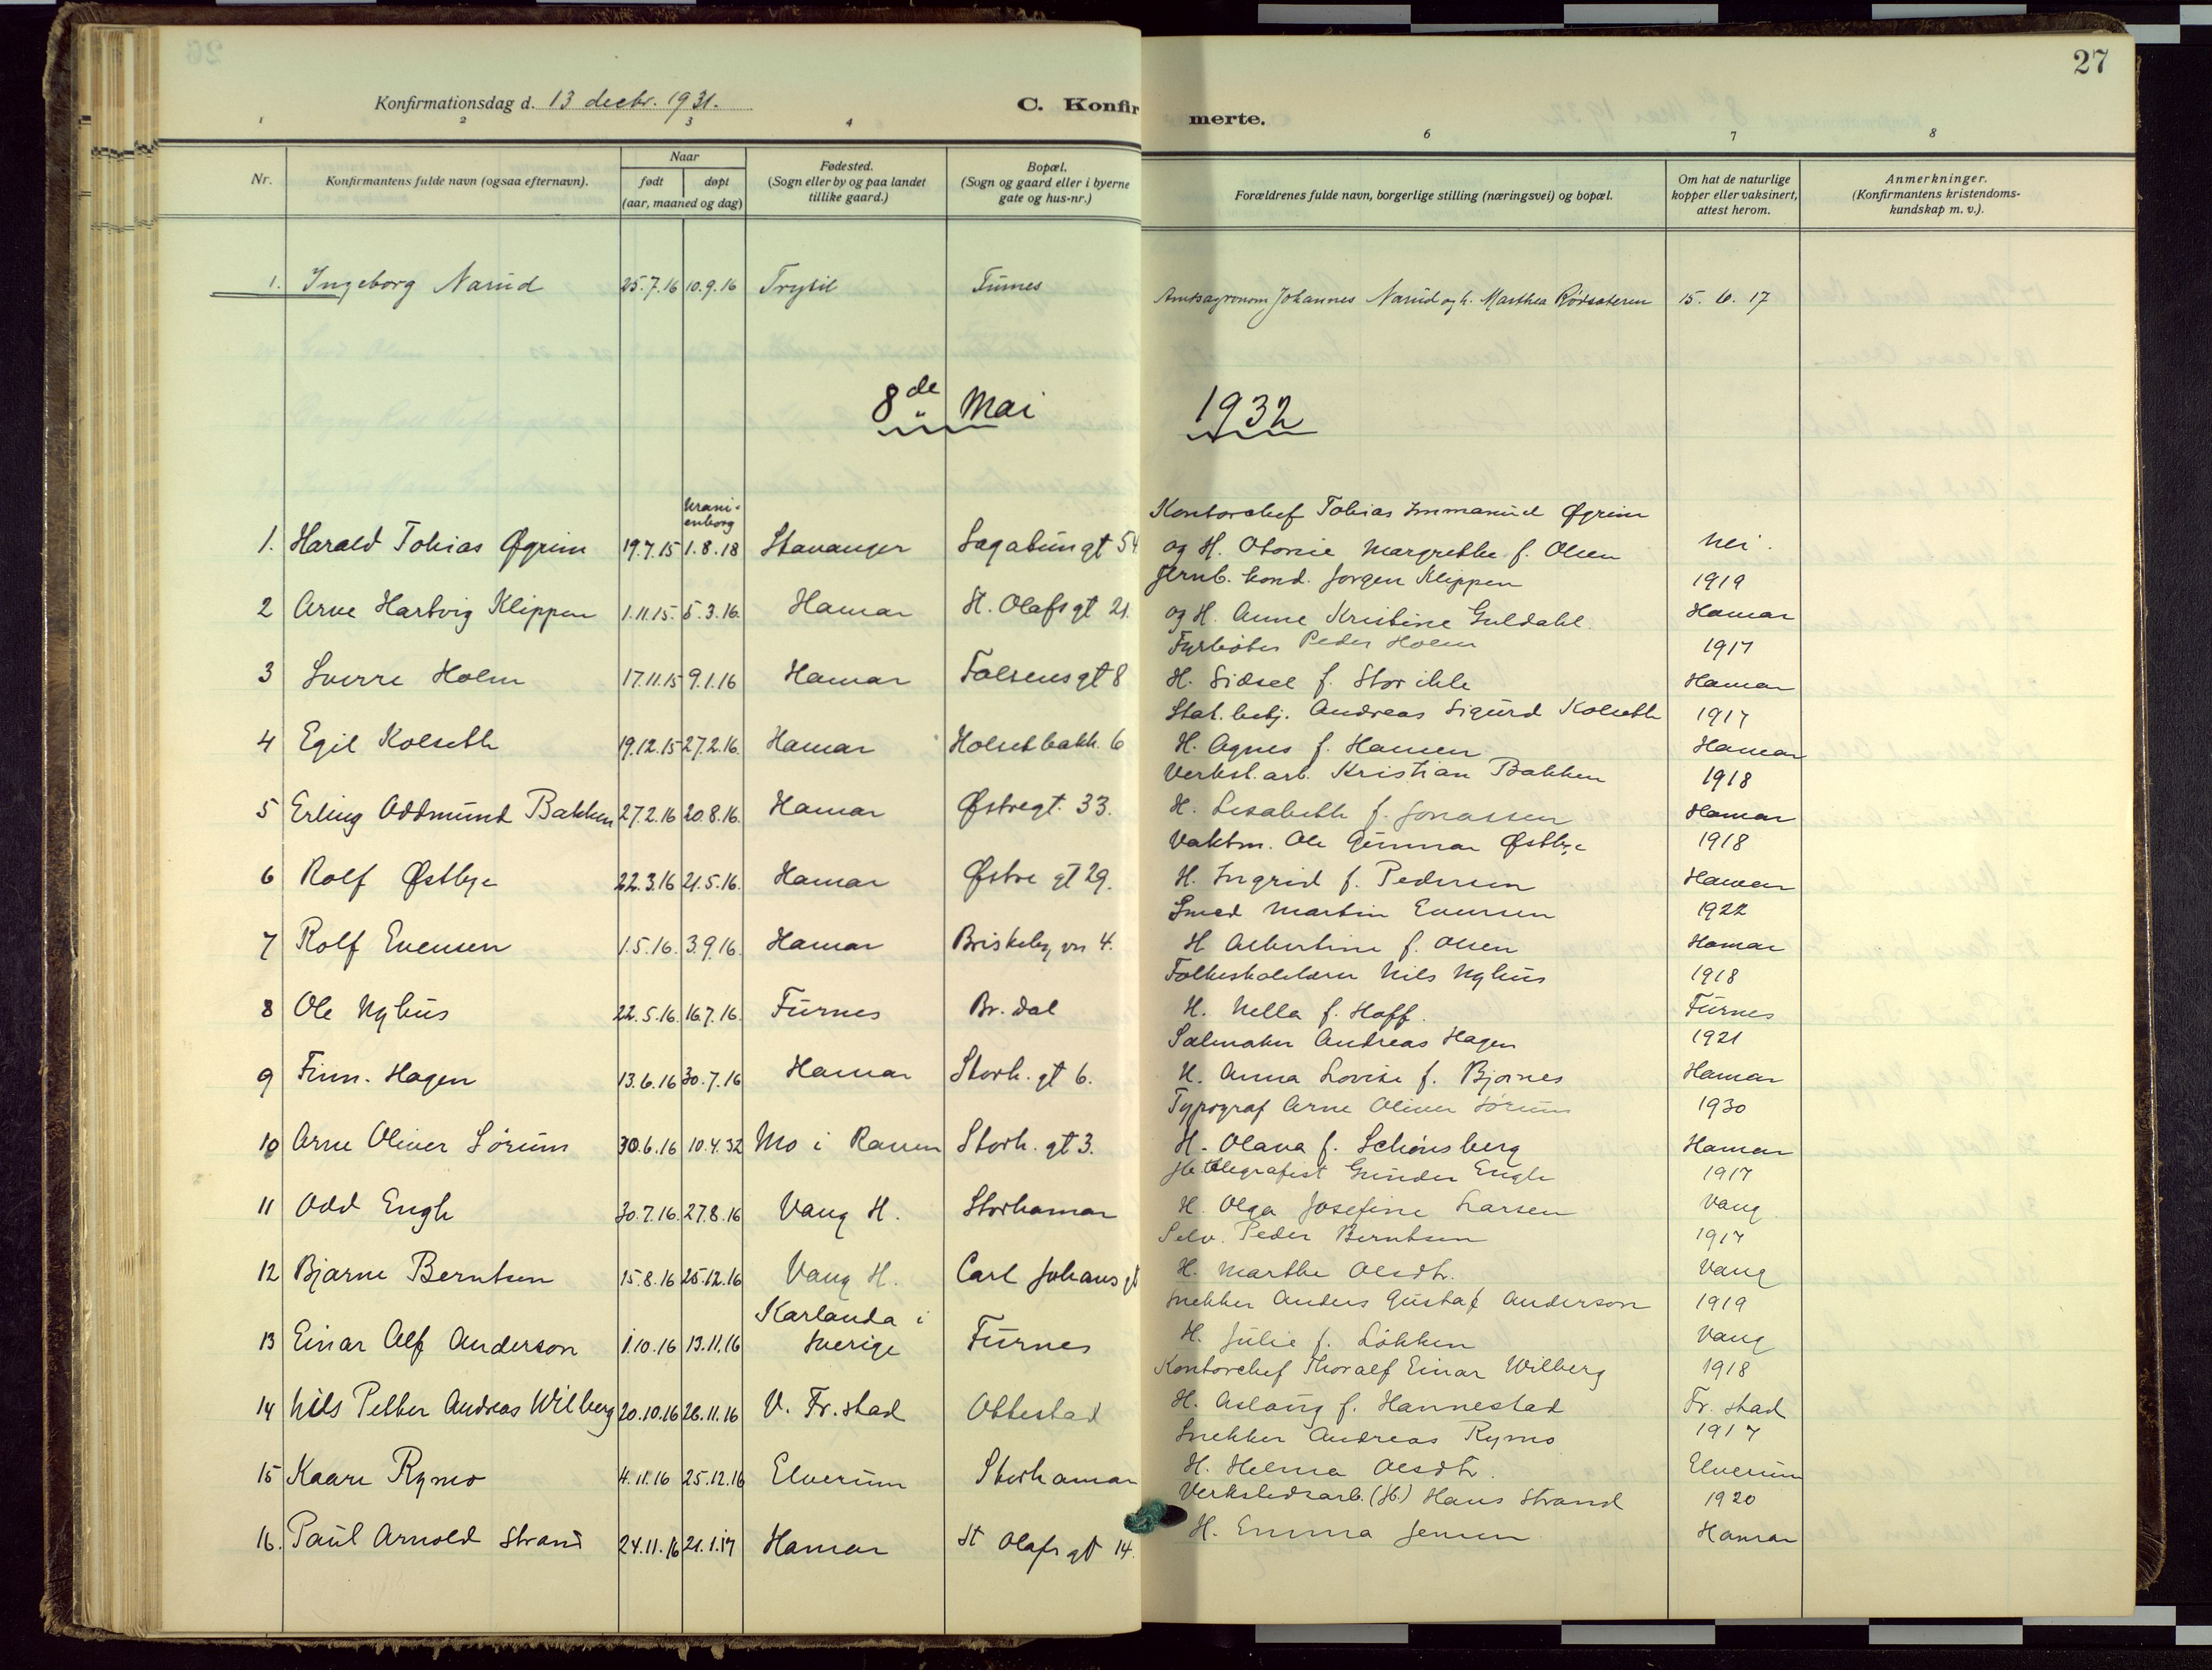 27
Konfirmationsdag d. 13 decbr. 1931.
C. Konfirmerte.
1 2 3 4 6 7 8
Nr.
Konfirmantens fulde navn (ogsaa efternavn).
Naar
født
døpt
(aar, maaned og dag)
Fødested.
(Sogn eller by og paa landet
tillike gaard.)
Bopæl.
(Sogn og gaard eller i byerne
gate og hus-nr.)
Forældrenes fulde navn, borgerlige stilling (næringsvei) og bopæl.
Om hat de naturlige
kopper eller vaksinert,
attest herom.
Anmerkninger.
(Konfirmantens kristendoms-
kundskap m. v.).
1. Ingeborg Narud 25.7.16 10.9.16 Trysil Furnes Amtsagronom Johannes Narud og h. Marthea Rødsæteren 15. 6. 17
8de Mai 1932
Urani-
enborg
Kontorchef Tobias Immanuel Øgrim
1. Harald Tobias Øgrim 19.7.15 1.8.18 Stavanger Sagatungt 54 og H. Otonie Margrethe f. Olsen Nei.
Jernb. kond. Jørgen Klippen 1919
2 Arne Hartvig Klippen 1.11.15. 5.3.16. Hamar St. Olafsgt 21. og H. Anne Kristine Guldahl. Hamar
Fyrbøter Peder Holm 1917
3 Sverre Holm 17.11.15 9.1.16 Hamar Falsensgt 8 H. Sidsel f. Storihle Hamar
Stat. betj. Andreas Sigurd Kolseth 1917
4 Egil Kolseth 19.12.15 27.2.16. Hamar Holsetbakk. 6 H. Agnes f. Hansen Hamar
Verkst. arb. Kristian Bakken 1918
5 Erling Oddmund Bakken 27.2.16 20.8.16. Hamar Østregt. 33. H. Lisabeth f. Jonassen Hamar
Vaktm. Ole Gunnar Østbye 1918
6 Rolf Østbye 22.3.16 21.5.16. Hamar Østre gt 29. H. Ingrid f. Pedersen Hamar
Smed Martin Evensen 1922
7 Rolf Evensen 1.5.16. 3.9.16. Hamar Briskeby vn 4. H Albertine f. Olsen Hamar
Folkeskolelærer Nils Nyhus 1918
8 Ole Nyhus 22.5.16. 16.7.16. Furnes Br. dal H. Nella f. Hoff. Furnes
Salmaker Andreas Hagen 1921
9 Finn. Hagen 13.6.16 30.7.16 Hamar Storh. gt 6. H. Anna Lovise f. Bjørnes Hamar
Typograf Arne Oliver Sørum 1930
10 Arne Oliver Sørum 30.6.16 10.4.32 Mo i Ranen Storh. gt 3. H. Olava f. Schønsberg Hamar
Jb. telegrafist Gunder Engh 1917
11 Odd Engh 30.7.16. 27.8.16 Vang H. Storhamar H. Olga Josefine Larsen Vang
Selv. Peder Berntsen 1917
12 Bjarne Berntsen 15.8.16 25.12.16 Vang H. Carl Johans gt H. Marthe Olsdtr. Vang
Karlanda i Snekker Anders Gustaf Anderson 1919
13 Einar Alf Anderson 1.10.16 13.11.16 Sverige Furnes H. Julie f. Løkken Vang
Kontorchef Thoralf Einar Wilberg 1918
14 Nils Petter Andreas Wilberg 20.10.16 26.11.16 V. Fr. stad Ottestad H. Aslaug f. Hannestad Fr. stad
Snekker Andreas Rymo 1917
15 Kaare Rymo 4.11.16 25.12.16 Elverum Storhamar H. Helma Olsdtr. Elverum
Verkstedsarb. (H.) Hans Strand 1920
16. Paul Arnold Strand 24.11.16 21.1.17 Hamar St Olafs gt 14. H. Emma Jensen Hamar